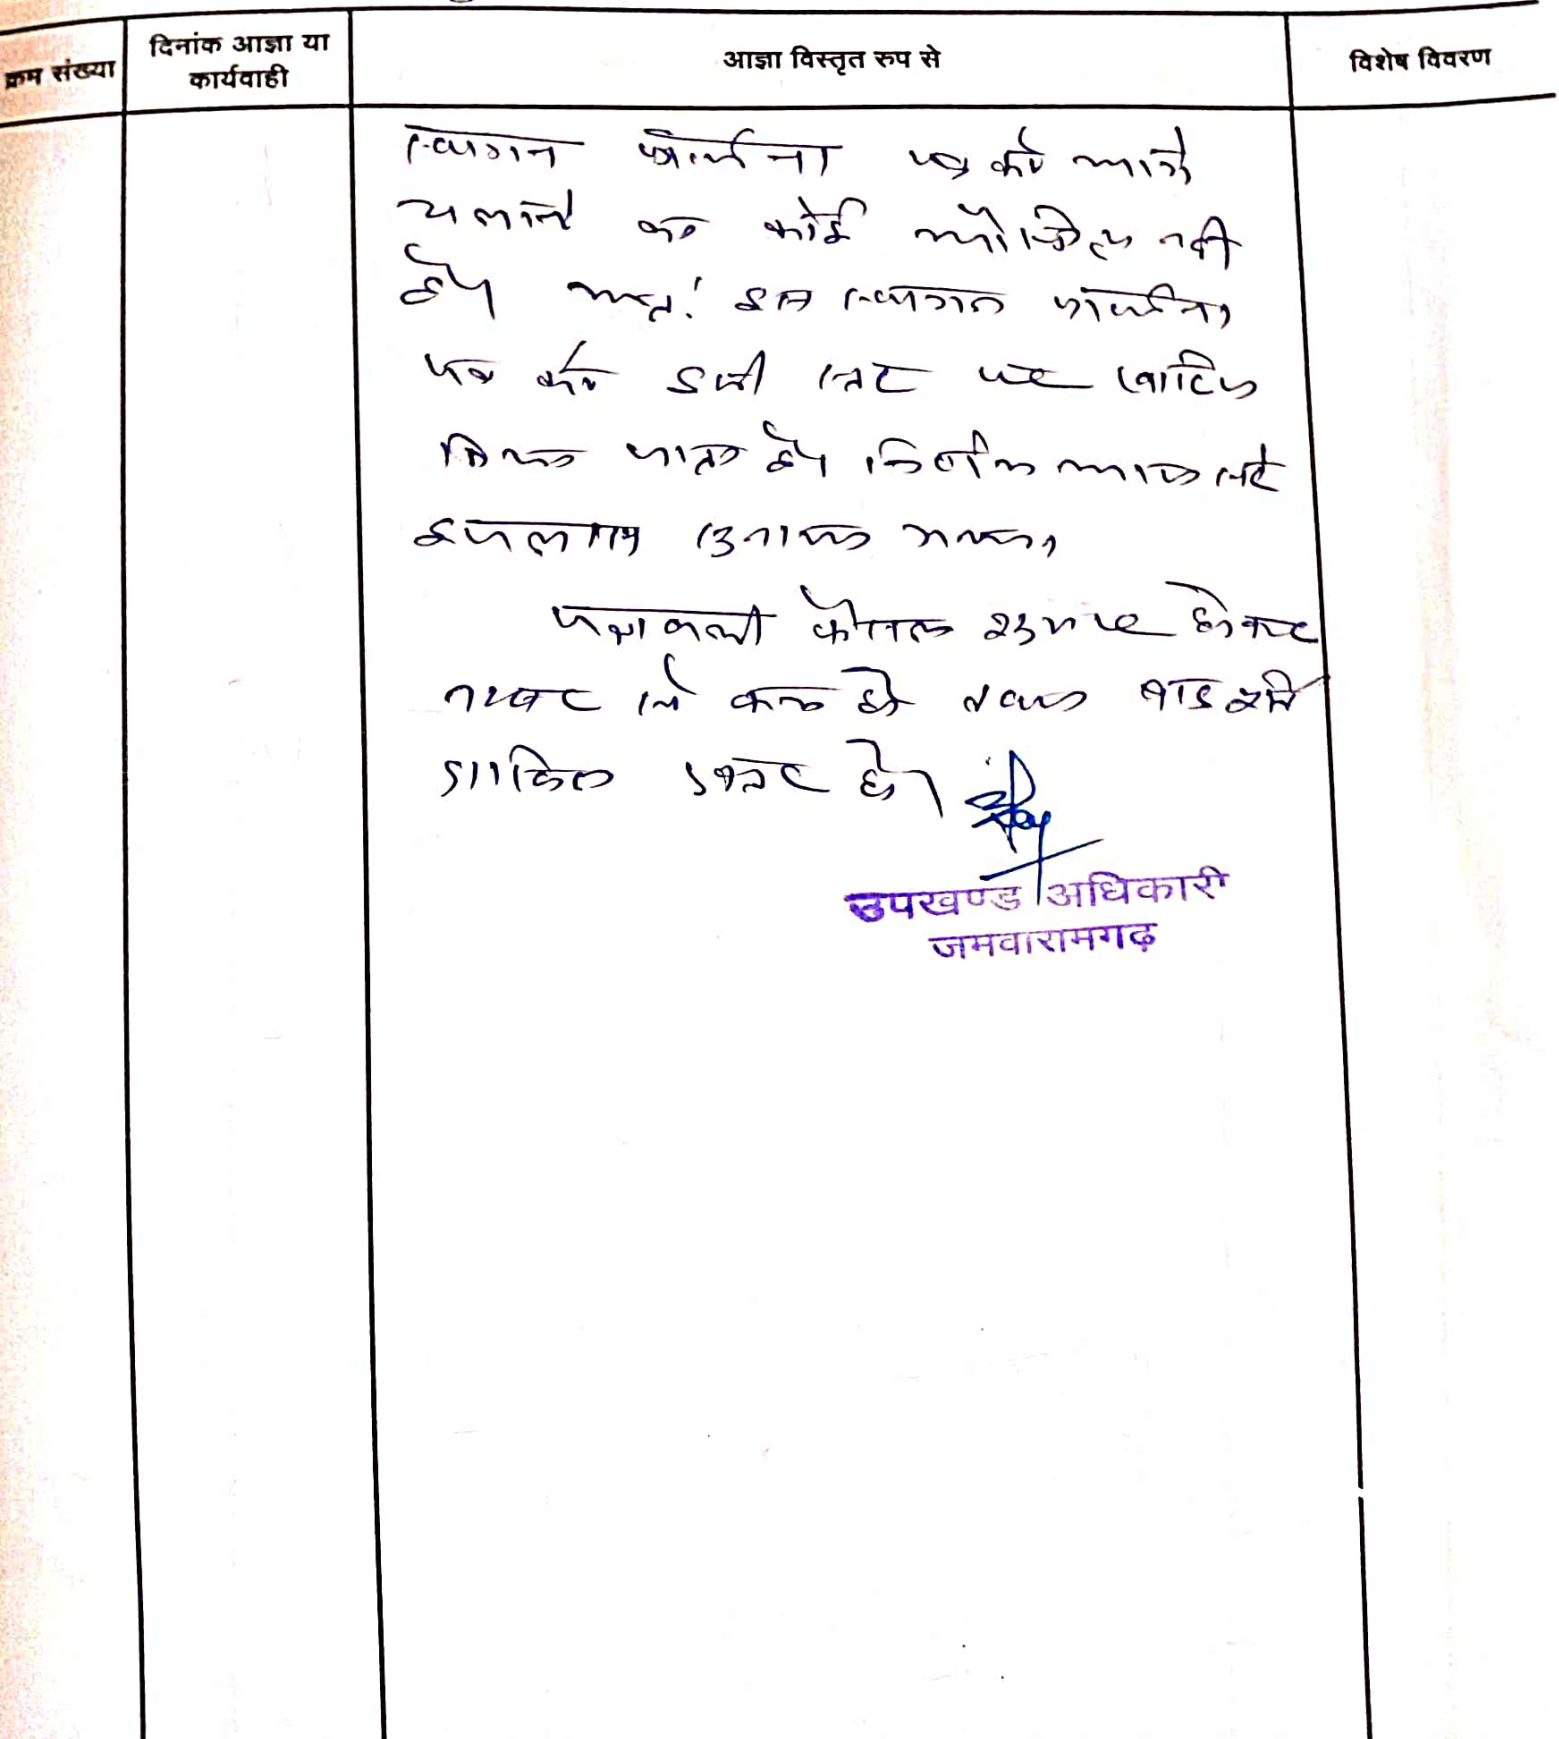 क्रम संख्या
दिनांक आज्ञा या
कार्यवाही
आज्ञा विस्तृत रुप से
विशेष विवरण
स्थगन प्रार्थना पत्र को आगे
चलाने का कोई औचित्य नहीं
है। अतः इस स्थगन प्रार्थना
पत्र को इसी स्तर पर खारिज
किया जाता है। निर्णय आज सरे
इजलास सुनाया गया।
पत्रावली फैसल शुमार होकर
नम्बर से कम हो तथा बाद
दाखिल दफ्तर हो।
उपखण्ड अधिकारी
जमवारामगढ़